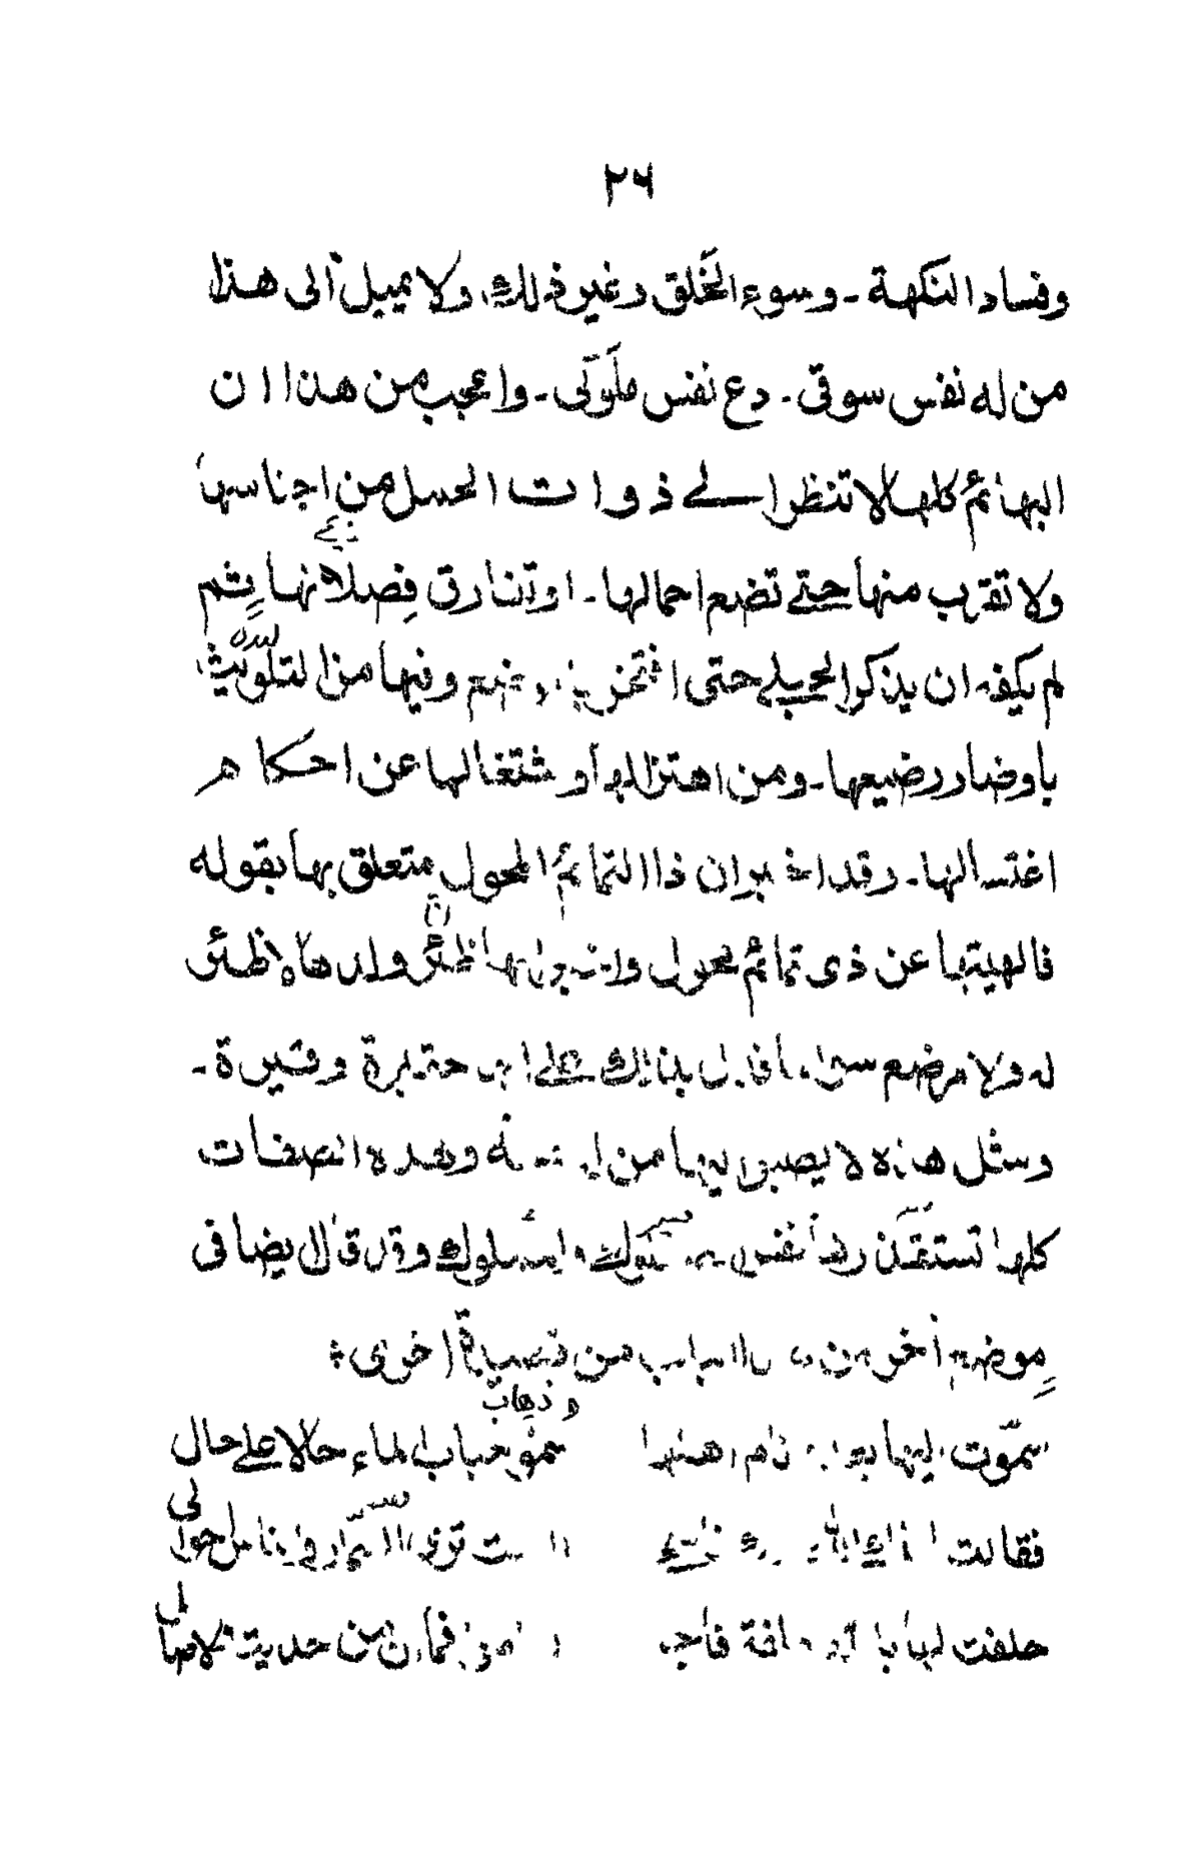 ٢٦
وفساد النكهة ـ وسوء الخلق وغير ذلك ولا يميل الى هذا
من له نفس سوقى ـ دع نفس ملوكى ـ واعجب من هذا ان
البهائم كلها لا تنظر الے ذوات الحمل من اجناسها
ولا تقرب منها حتے تضع احمالها ـ او تفارق فصلانها ثم
لم يكفه ان يذكر الحبلے حتى افتخر بالمرضع وفيها من التلويث
باوضار رضيعها ـ ومن اهتزالها واشتغالها عن احكام
اغتسالها ـ وقد اخبر ان ذا التمائم المحول متعلق بها بقوله
فالهيتها عن ذى تمائم محول واخبر انها ظئر ولدها لا ظئر
له ولا مرضع سواها فدل بذلك علے انها حقيرة وفقيرة ـ
ومثل هذه لا يصبو اليها من له وهذه الصفات
كلها تستقذرها نفس الصعلوك والمملوك وقد قال ايضا فى
موضع اخر من الباب من قصيدة اخرى :
سموت اليها بعد ما نام اهلها سمو حباب الماء حالا علے حال
فقالت الست ترى السمار والناس احوالى
حلفت لها بالله حلفة فاجر فما ان من حديث ولا صالى